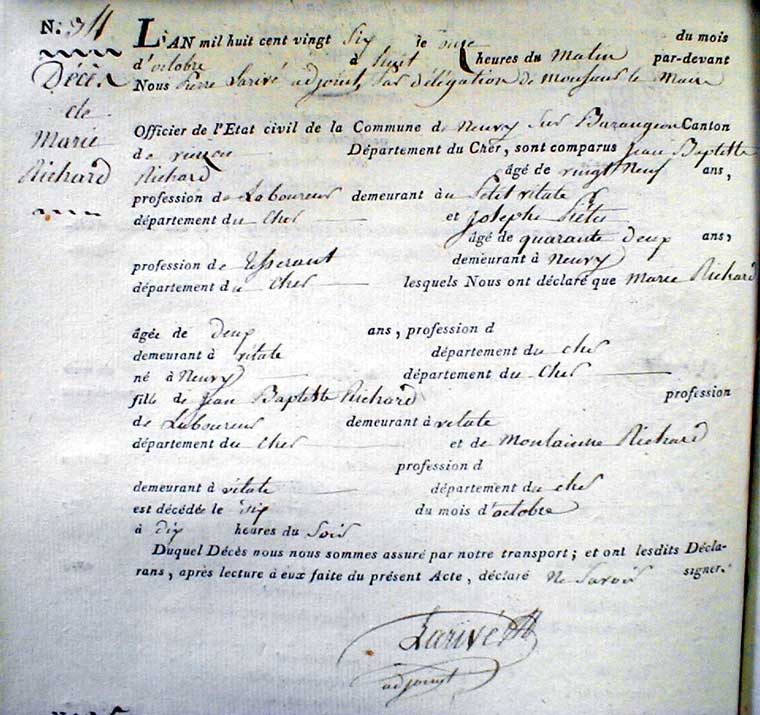 N.° 34
Décès
de
Marie
Richard
L'AN mil huit cent vingt Six le onze du mois
d'octobre à huit heures du Matin par-devant
Nous Pierre Larivé adjoint, par délégation de monsieur le Maire
Officier de l'Etat civil de la Commune de Neuvy Sur Barangeon Canton
de vierzon Département du Cher, sont comparus Jean Baptette
Richard âgé de vingt Neuf ans,
profession de Laboureur demeurant à u Petit vitate
département du Cher et Josephe
âgé de quarante deux ans,
profession de tisserant demeurant à Neuvy
département du Cher lesquels Nous ont déclaré que Marie Richard
âgée de deux ans, profession d
demeurant à vitate département du cher
né à Neuvy département du Cher
fille de Jean Baptette Richard profession
de Laboureur demeurant à vitate
département du Cher et de Richard
profession d
demeurant à vitate département du cher
est décédée le Six du mois d'octobre
à dix heures du Soir
Duquel Décès nous nous sommes assuré par notre transport; et ont lesdits Décla-
rans, après lecture à eux faite du présent Acte, déclaré ne Savoir signer.
Larivé
adjoint